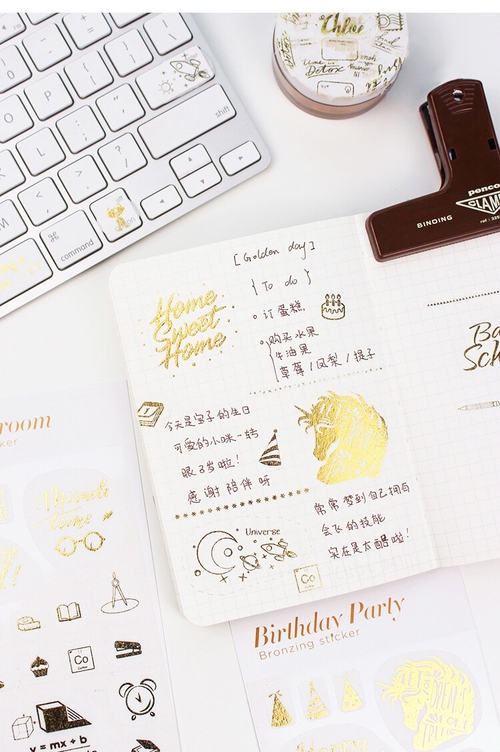 shift
command
⌘
M
Chloe
Detox
penco
CLAMP
BINDING
[Golden day]
{To do}
Home
Sweet
Home
。订蛋糕
。购买水果
牛油果
草莓/凤梨/提子
今天是宝子的生日
可爱的小咪一转
眼3岁啦!
感谢陪伴呀
常常梦到自己拥有
会飞的技能
实在是太酷啦!
Universe
Co
room
Co
y = mx + b
Birthday Party
Bronzing sticker